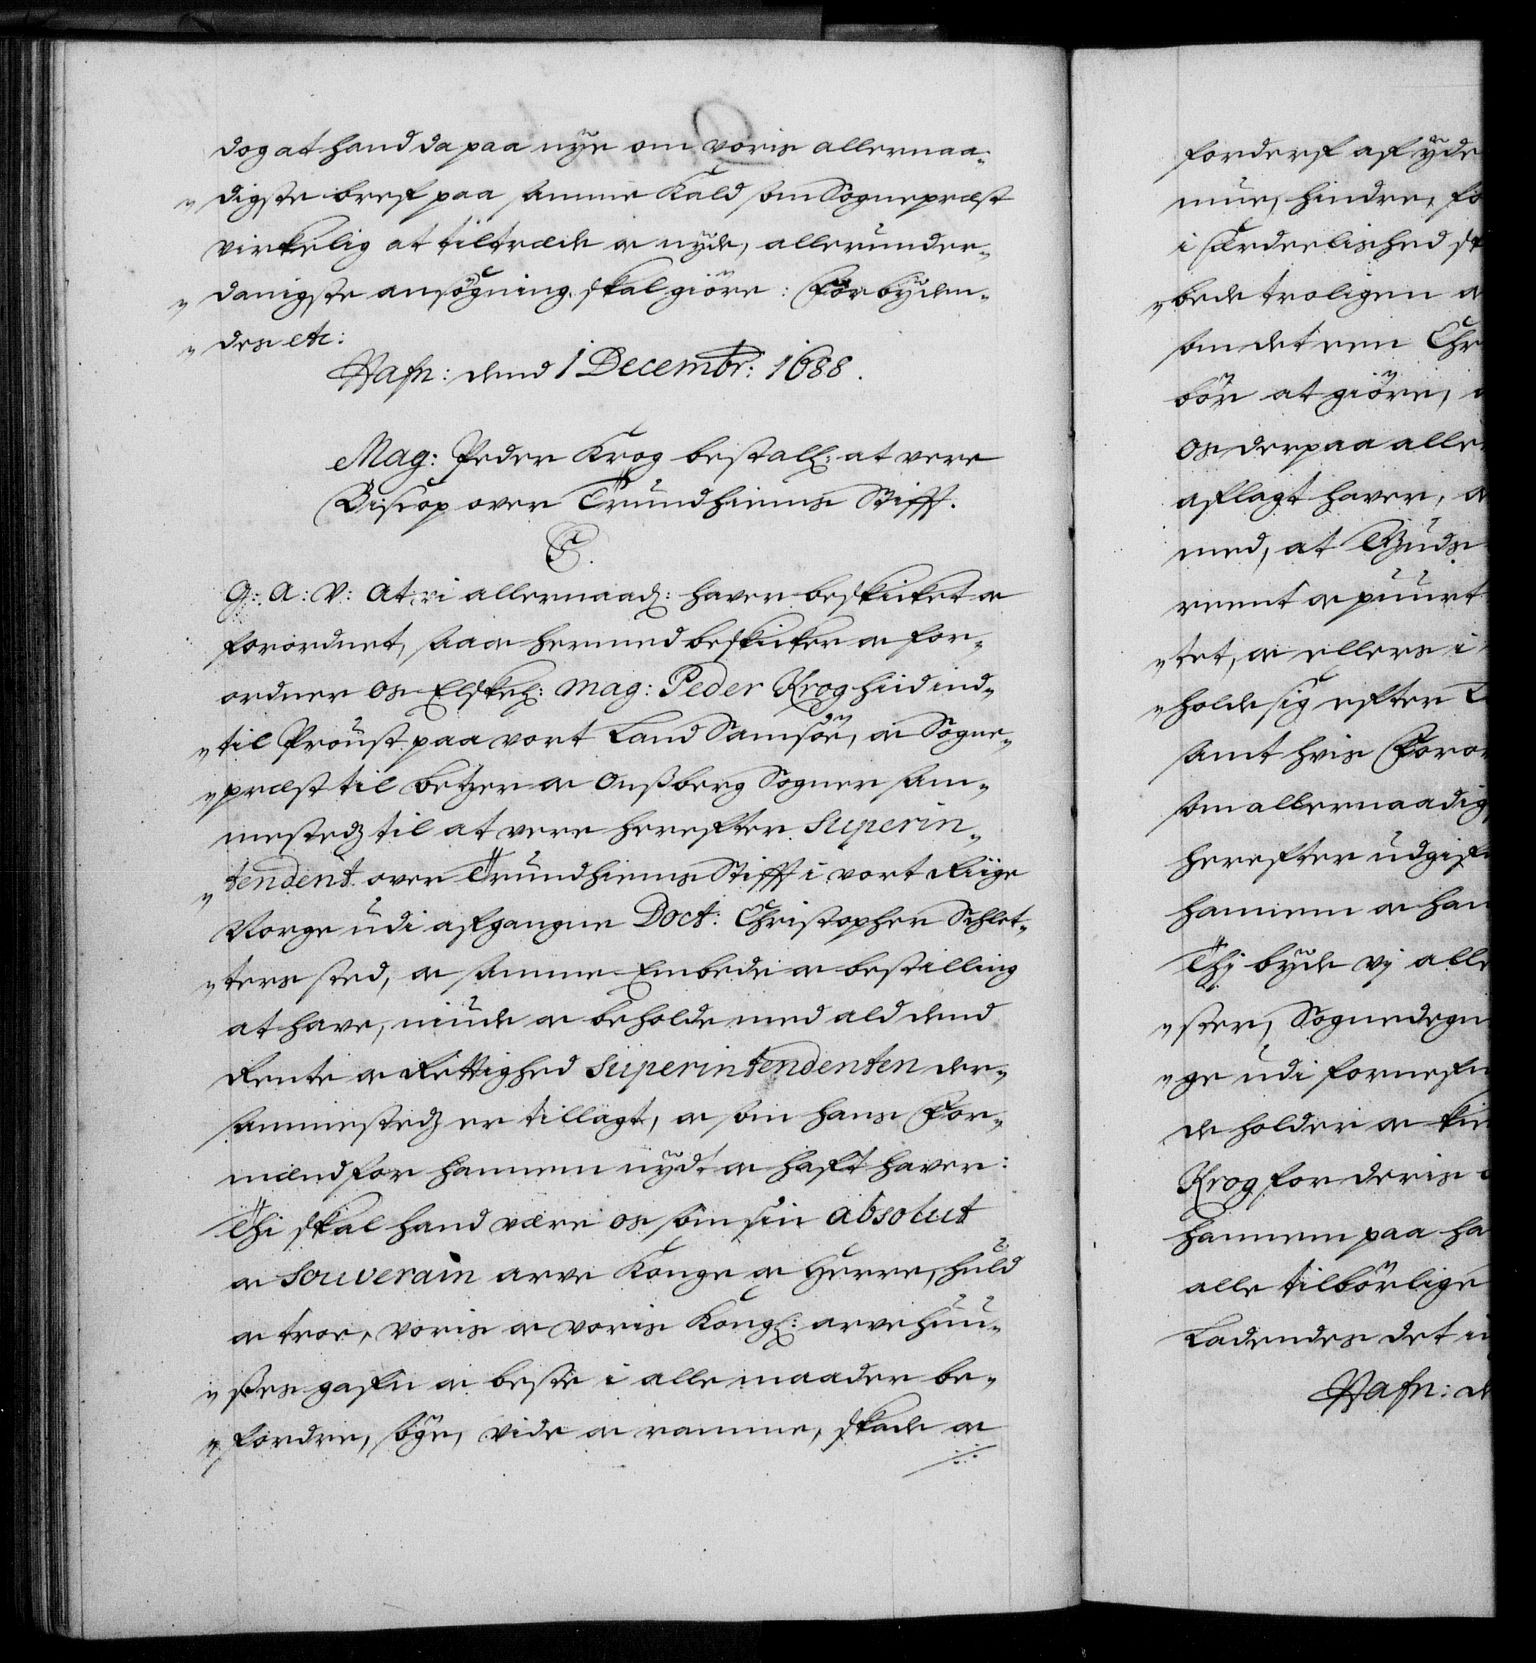 dog at hand da paa nÿe om voris allernaa-
digste bref paa samme Kald som Sognepræst
virkelig at tiltræde oc nÿde, allerunder-
danigste ansøgning skal giöre: Forbÿden-
des etc:
Hafn: dend 1 Decembr: 1688.
Mag: Peder Krog bestall: at vere
Biscop over Trundhiems Stifft.
C5.
G: A: V: At vi allernaad: haver beskicket oc
forordnet, saa oc hermed beskicker oc for-
ordner os Elskel: Mag: Peder Krog hid ind-
til Proust paa vort Land Samsöe, oc Sogne-
præst til Betzer oc Onßberg Sogner sam-
mestedz til at vere herefter Superin-
tendent over Trundhiems Stifft i vort Riige
Norge udi afgangne Doct: Christopher Schlet-
ters sted, oc samme Embede oc bestilling
at have, niude oc beholde med ald dend
Rente oc Rettighed Superintendenten der-
sammestedz er tillagt, oc som hans For-
mænd for hannem nÿdt oc haft haver:
Thi skal hand være os som sin absolut
oc Souverain arve Konge oc Herre, huld
oc troe, voris oc voris Kongl: arve huu-
ses gafn oc beste i alle maader be-
fordre, söge, vide oc ramme, skade oc
forderf af ÿde
mue, hindre, fo
i særdeelished sk
bede troligen oc
som det een Chr
bör at giöre, o
os derpaa alle
aflagt haver, oc
med, at Guds
reent oc puurt
tet, oc ellers i
holde sig efter L
samt hvis Foror
som allernaadig
herefter udgifv
hannem oc han
Thj bÿde vj alle
ster, Sognedegn
ge udi fornefn
de holder oc kie
Krog for deris
hannem paa ha
alle tilbörlige
Ladendes det i
Hafn: de